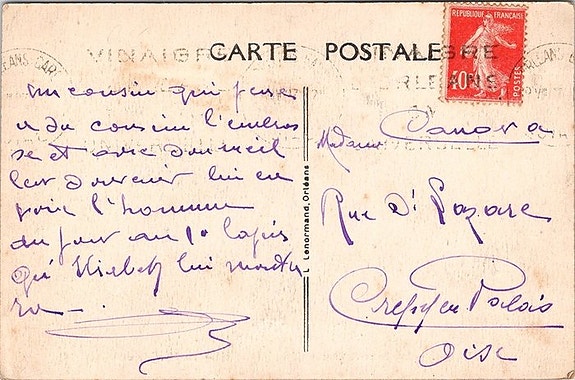 CARTE POSTALE
VINAIGRE
ORLEANS
RÉPUBLIQUE FRANÇAISE
40c
POSTES
un cousin qui pense
a du cousin l'embras
se et avec son meil
leur souvenir lui en
voie l'homme
du jour au
qui lui montre
ra
L. Lenormand, Orléans
Madame Canova
Rue St Lazare
Crépy en Valois
Oise